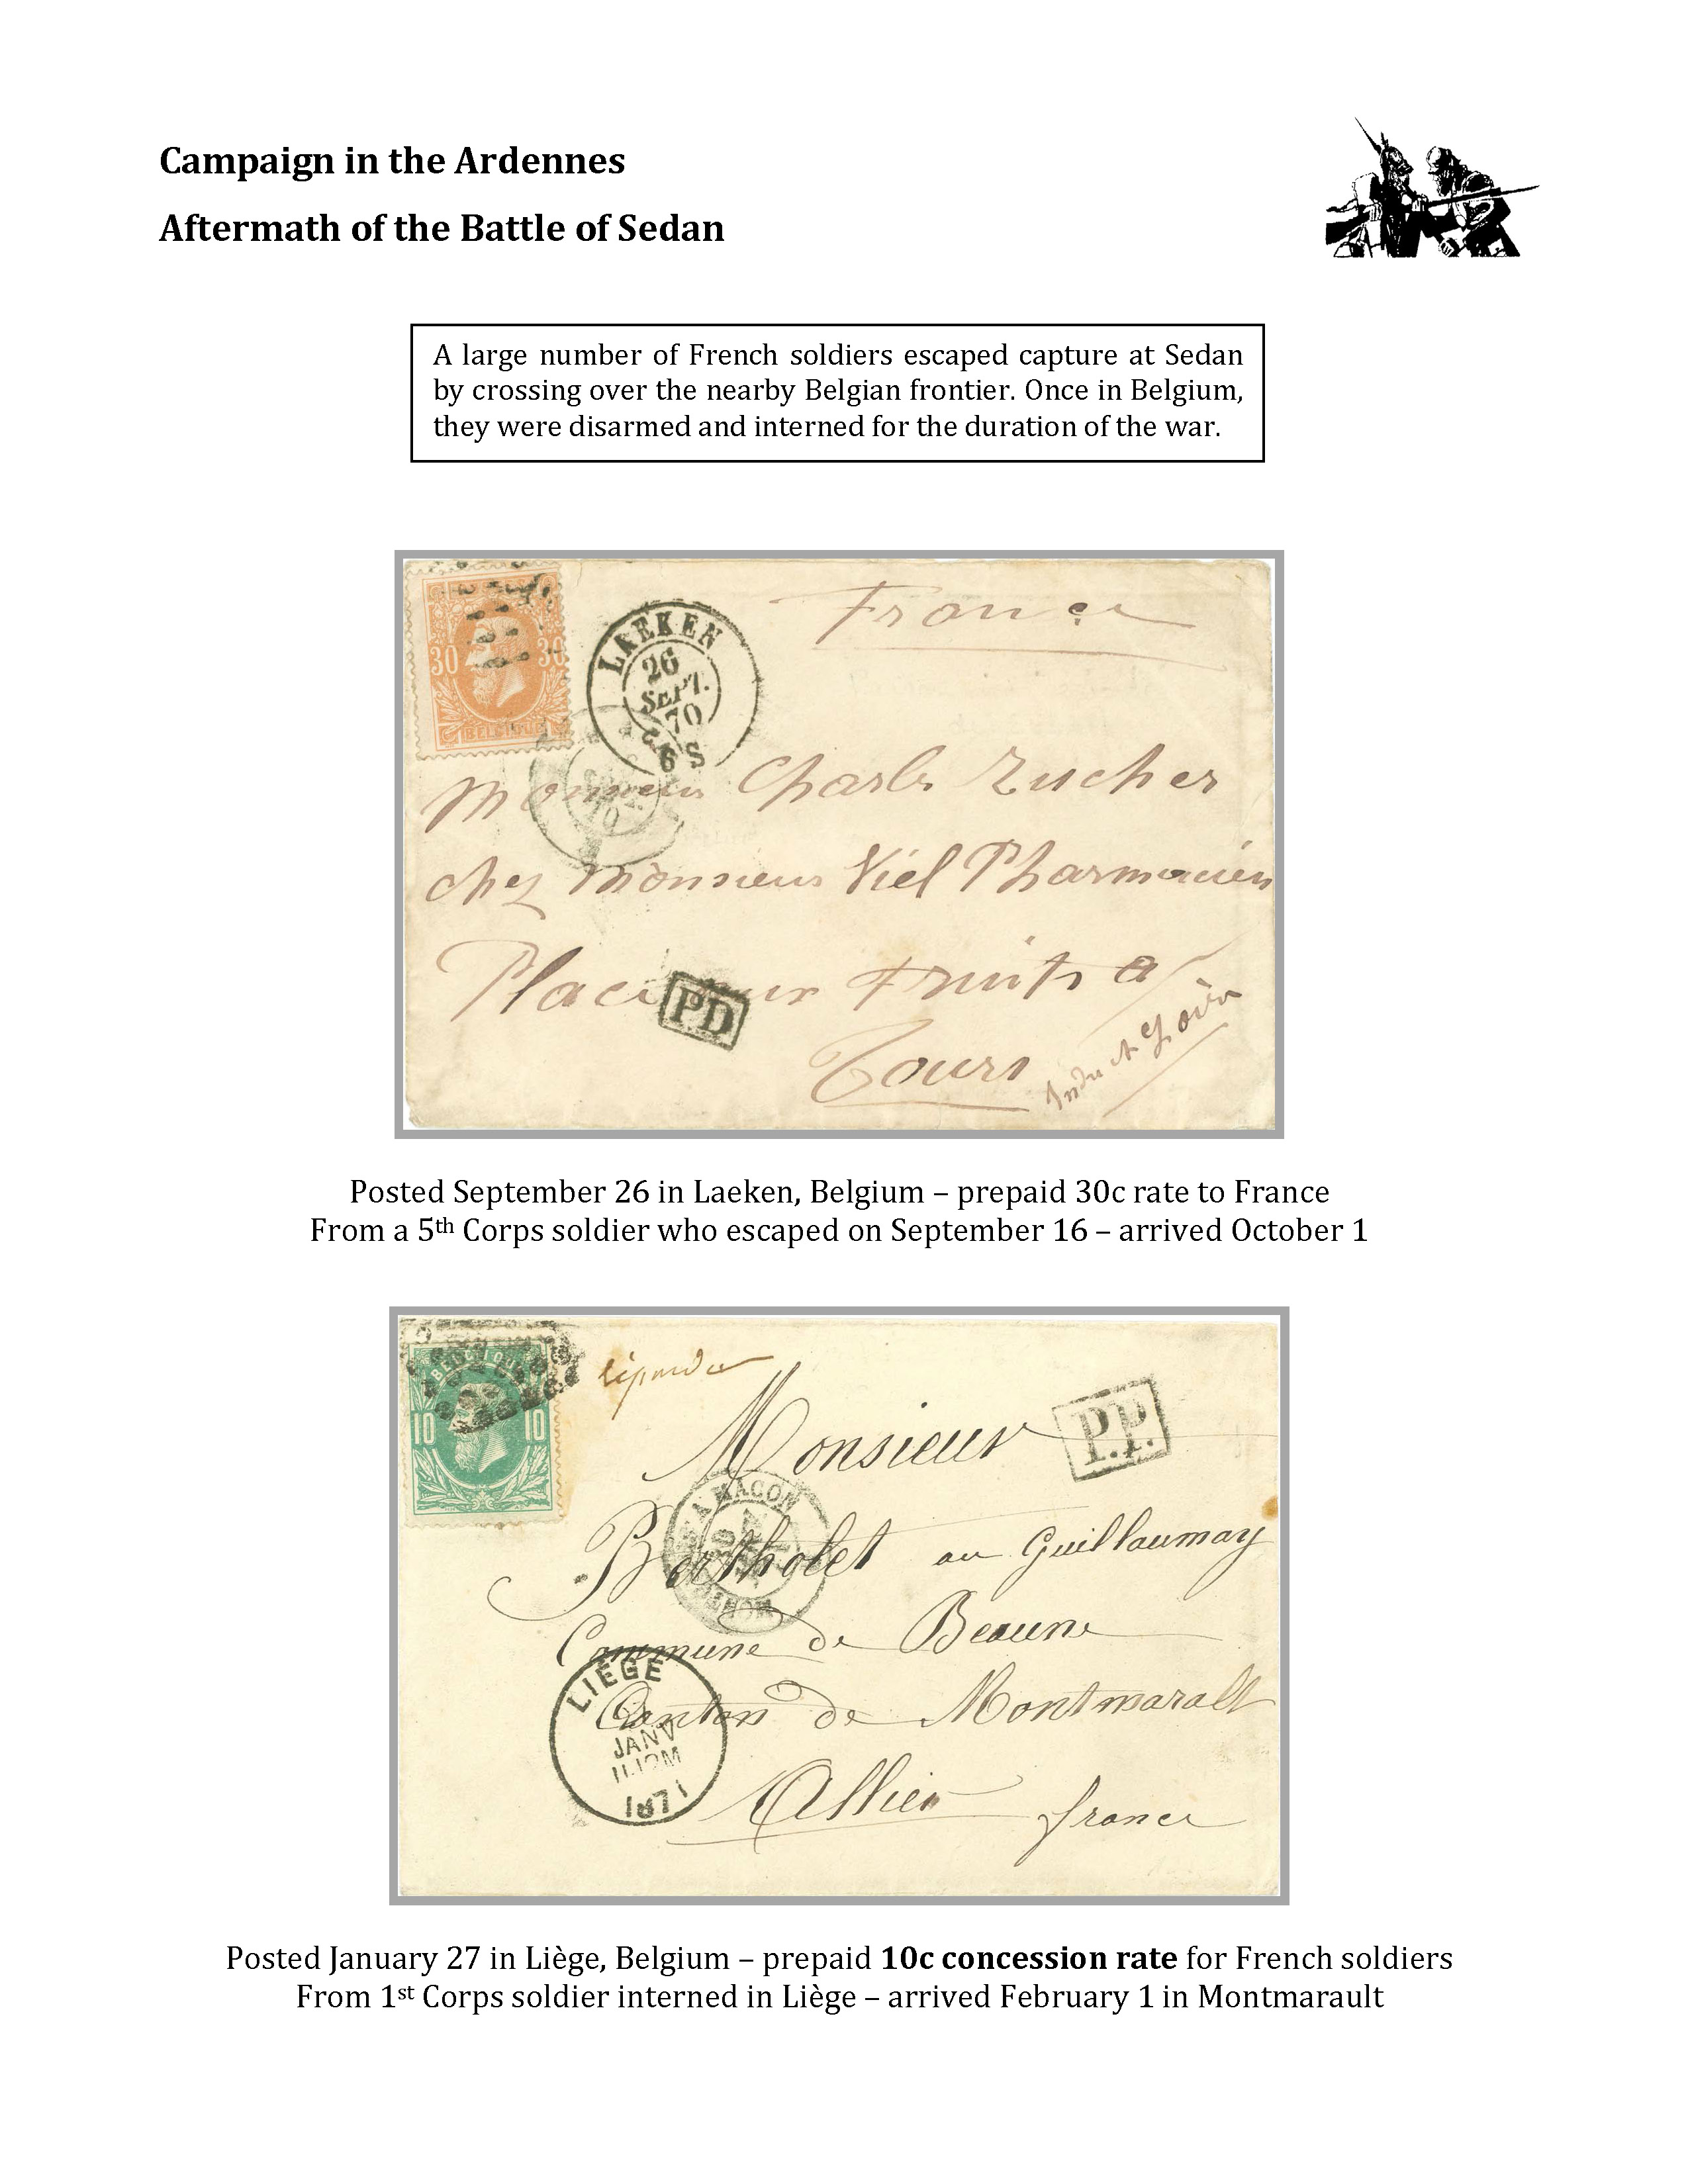 Campaign in the Ardennes
Aftermath of the Battle of Sedan
A large number of French soldiers escaped capture at Sedan
by crossing over the nearby Belgian frontier. Once in Belgium,
they were disarmed and interned for the duration of the war.
30 30
BELGIQUE
LAEKEN
26
SEPT.
70
6 S
France
Monsieur Charles Zucher
chez Monsieur Viel Pharmacien
Place aux Fruits a
PD
Tours
Indre et Loire
Posted September 26 in Laeken, Belgium – prepaid 30c rate to France
From a 5th Corps soldier who escaped on September 16 – arrived October 1
BELGIQUE
10 10
Monsieur
P.P.
A MACON
Bertholet au Guillaumay
Commune de Beaune
LIÈGE
Canton de Montmaralt
JANV
1871
Allier france
Posted January 27 in Liège, Belgium – prepaid 10c concession rate for French soldiers
From 1st Corps soldier interned in Liège – arrived February 1 in Montmarault